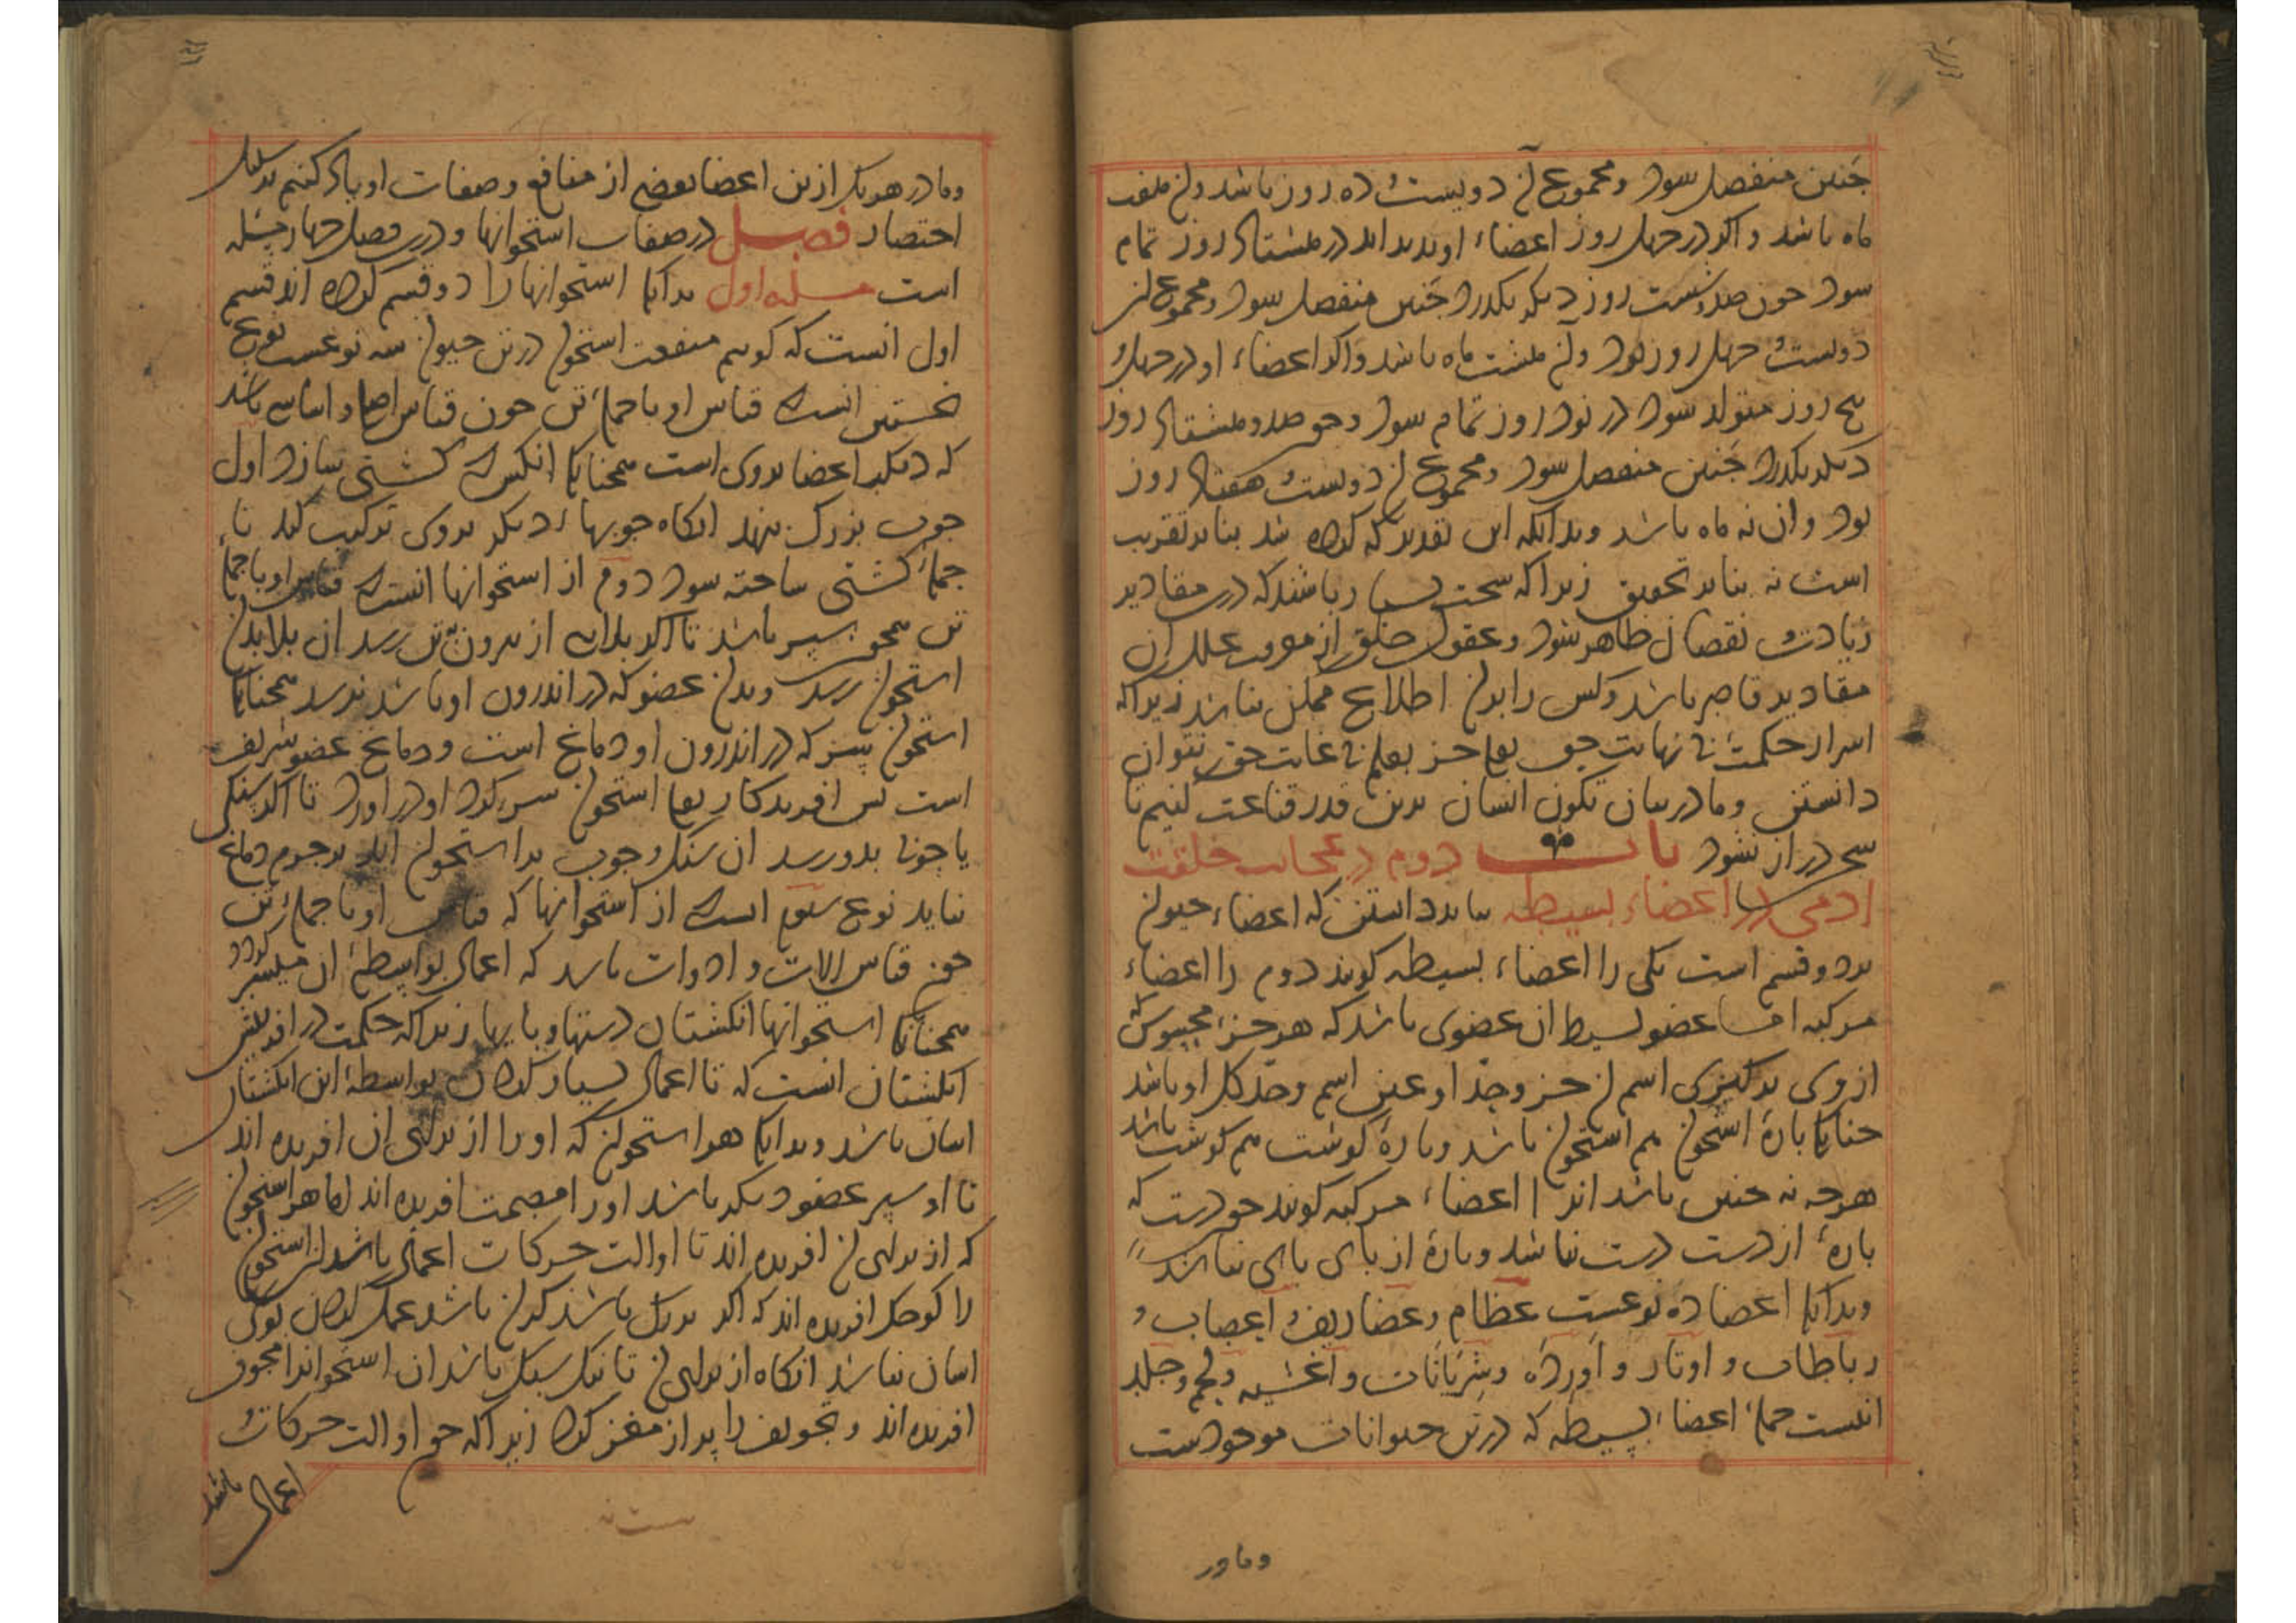 جنین منفصل سود و مجموع آن دویست و ده روز باشد و آن هفت
ماه باشد و اگر در چهل روز اعضاء او پدید اید در هشتاد روز تمام
سود چون صد و شست روز دیگر بگذرد جنین منفصل سود و مجموع آن
دویست و چهل روز بود و آن هشت ماه باشد و اگر اعضاء او در چهل و
پنج روز متولد سود در نود روز تمام سود و چون صد و هشتاد روز
دیگر بگذرد جنین منفصل سود و مجموع آن دویست و هفتاد روز
بود و ان نه ماه باشد و بدانکه این تقدیر که کرده شد بنابر تقریب
است نه بنابر تحقیق زیرا که سخت بسیار باشد که درین مقادیر
زیادت و نقصان ظاهر شود و عقول خلق از معرفت علل ان
مقادیر قاصر باشد و کس را بدان اطلاع ممکن نباشد زیرا که
اسرار حکمت بی نهایت حق تعالی جز بعلم بی غایت حق نتوان
دانستن و ما در بیان تکون انسان بدین قدر قناعت کنیم تا
سخن دراز نشود باب دوم در عجایب خلقت
ادمی در اعضاء بسیطه بباید دانستن که اعضاء حیوان
بر دو قسم است یکی را اعضاء بسیطه کویند دوم را اعضاء
مرکبه اما عضو بسیط ان عضوی باشد که هر جزء محسوس که
ازوی بر کیری اسم ان جزو و حد او عین اسم و حد کل او باشد
چنانک پارۀ استخوان هم استخوان باشد و پارۀ کوشت هم کوشت باشد
هرچه نه چنین باشد انرا اعضاء مرکبه کویند چو دست که
پارۀ از دست دست نباشد و پارۀ از پای پای نباشد
و بدانک اعضا ده نوعست عظام و غضاریف و اعصاب و
رباطات و اوتار و اورده و شریانات و اغشیه و لحم و جلد
اینست جملۀ اعضاء بسیطه که در تن حیوانات موجودست
و ما در
و ما در هر یک ازین اعضا بعضی از منافع و صفات او یاد کنیم بر سبیل
اختصار فصل در صفات استخوانها و درین فصل چهار مسئله
است مسئله اول بدانک استخوانها را دو قسم کرده اند قسم
اول انست که کوییم منفعت استخوان در تن حیوان سه نوعست نوع
نخستین انست که قیاس او با جملۀ تن چون قیاس اصل و اساسی باشد
که دیگر اعضا بروی است همچنانک انکس که کشتی سازد اول
چوب بزرک بنهد انکاه چوبهاء دیگر بروی ترکیب کند تا
جملۀ کشتی ساخته سود دوم از استخوانها انست که قیاس او با جملۀ
تن همچو سپر باشد تا اگر بلایی از بیرون تن رسد ان بلا بدان
استخوان رسد و بدان عضو که در اندرون او باشد نرسد همچنانک
استخوان سر که در اندرون او دماغ است و دماغ عضو شریف
است پس افریدکار تعالی استخوان سر کرد او در اورد تا اگر سنکی
یا چوبی بدو رسد ان سنک و چوب بر استخوان اید بر جرم دماغ
نیاید نوع سوم انست که از استخوانها که قیاس او با جملۀ تن
چون قیاس الات و ادوات باشد که اعمال بواسطۀ ان میسر کردد
همچنانک استخوانها انکشتان دستها و پایها زیرا که حکمت در افرینش
انکشتان انست که تا اعمال بسیار کردن بواسطۀ این انکشتان
اسان باشد و بدانک هر استخوان که او را از برای ان افریده اند
تا او سپر عضو دیکر باشد او را مصمت افریده اند اما هر استخوان
که از برای ان افریده اند تا او الت حرکات اعمال باشد ان استخوان
را کوچک افریده اند که اگر بزرک باشد کران باشد عمل کردن بوی
اسان نباشد انکاه از برای ان تا نیک سبک باشد ان استخوانرا مجوف
افریده اند و تجویف را پر از مغز کرده زیرا که چو او الت حرکات و
اعمال باشد